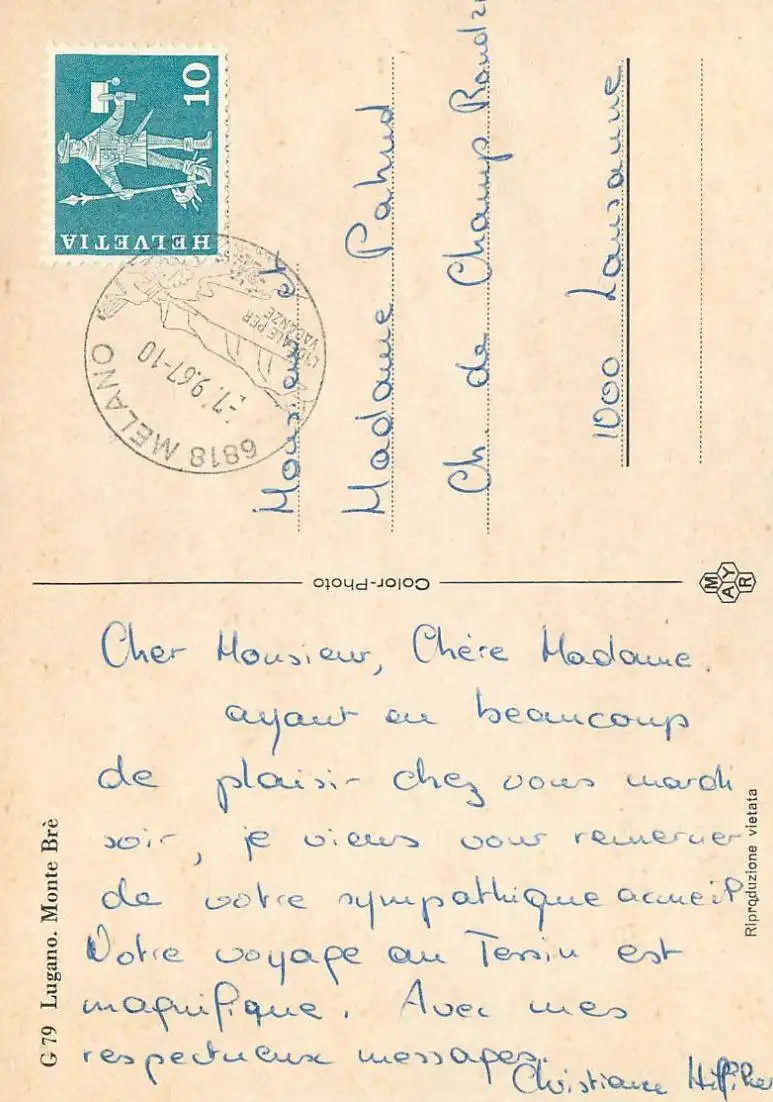 HELVETIA
10
6818 MELANO
-7.9.67-10
VACANZE
Monsieur et
Madame Pahud
Ch. de Champ Rond
1000 Lausanne
Color-Photo
MAYR
Cher Monsieur, Chère Madame.
ayant eu beaucoup
de plaisir chez vous mardi
soir, je viens vour remercier
de votre sympathique accueil
Notre voyage au Tessin est
magnifique. Avec mes
respectueux messages.
Christiane
G 79 Lugano. Monte Brè
Riproduzione vietata